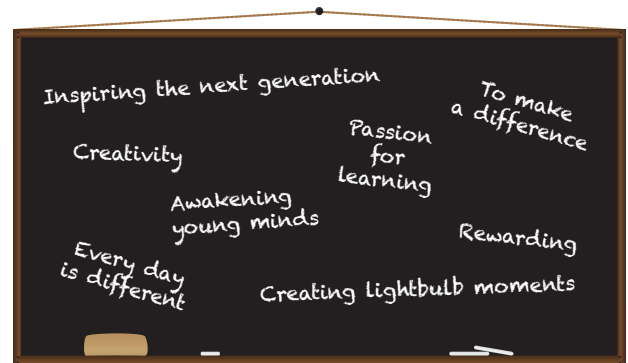 Inspiring the next generation
To make
a difference
Creativity
Passion
for
learning
Awakening
young minds
Rewarding
Every day
is different
Creating lightbulb moments